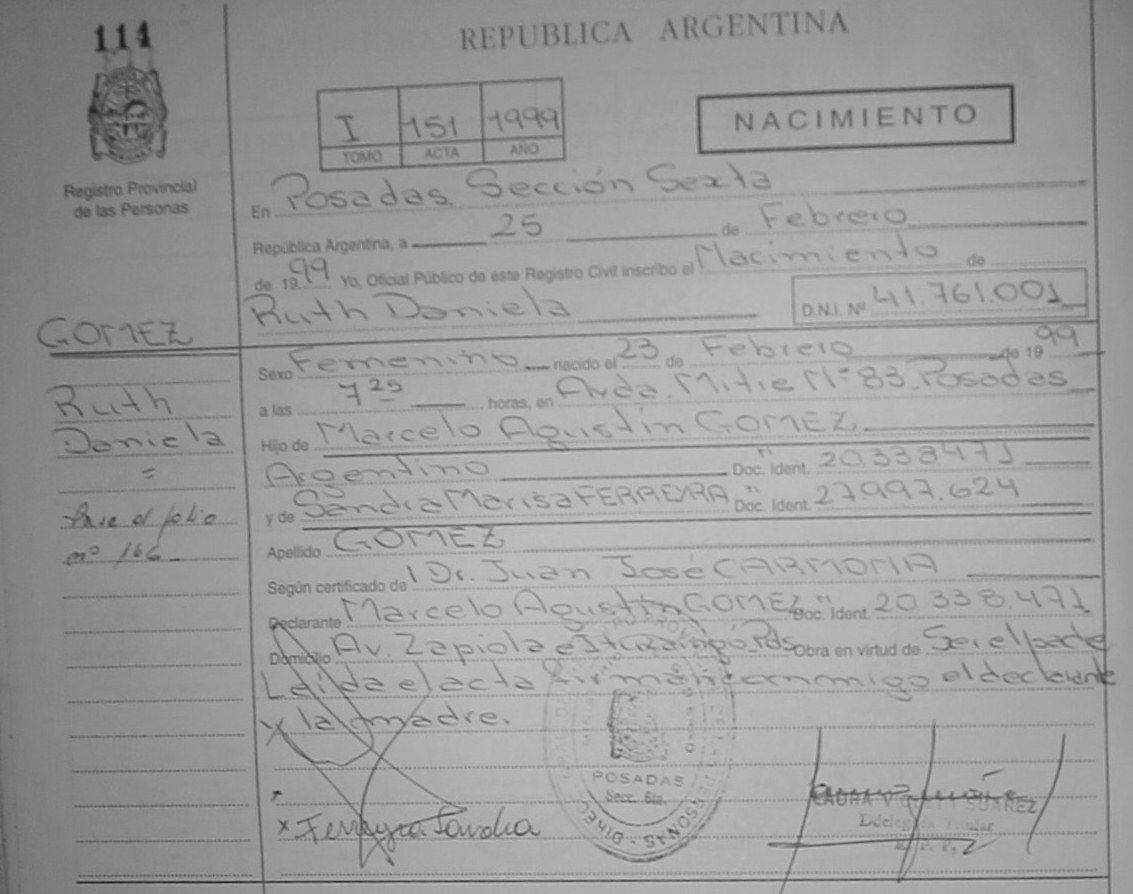 114
REPUBLICA ARGENTINA
I 151 1999
TOMO ACTA AÑO
NACIMIENTO
Registro Provincial
de las Personas
En Posadas, Sección Sexta
República Argentina, a 25 de Febrero
de 1999 Yo, Oficial Público de este Registro Civil inscribo el Nacimiento de
Ruth Daniela
D.N.I. Nº 41.761.001
GOMEZ
Ruth
Daniela
=
Pase al folio
nº 166
Sexo Femenino nacido el 23 de Febrero de 1999
a las 7 25 horas, en Avda. Mitre Nº 83, Posadas
Hijo de Marcelo Agustín GOMEZ
Argentino Doc. Ident. " 20.338.471
y de Sandra Marisa FERREYRA Doc. Ident. " 27.997.624
Apellido GOMEZ
Según certificado de Dr. Juan José CARMONA
Declarante Marcelo Agustín GOMEZ Doc. Ident. " 20.338.471
Domicilio Av. Zapiola e Ituzaingó, Pdas Obra en virtud de Ser el padre
Leída el acta firman conmigo el declarante
y la madre.
POSADAS
Secc. 6ta.
x Ferreyra Sandra
LAURA SUÁREZ